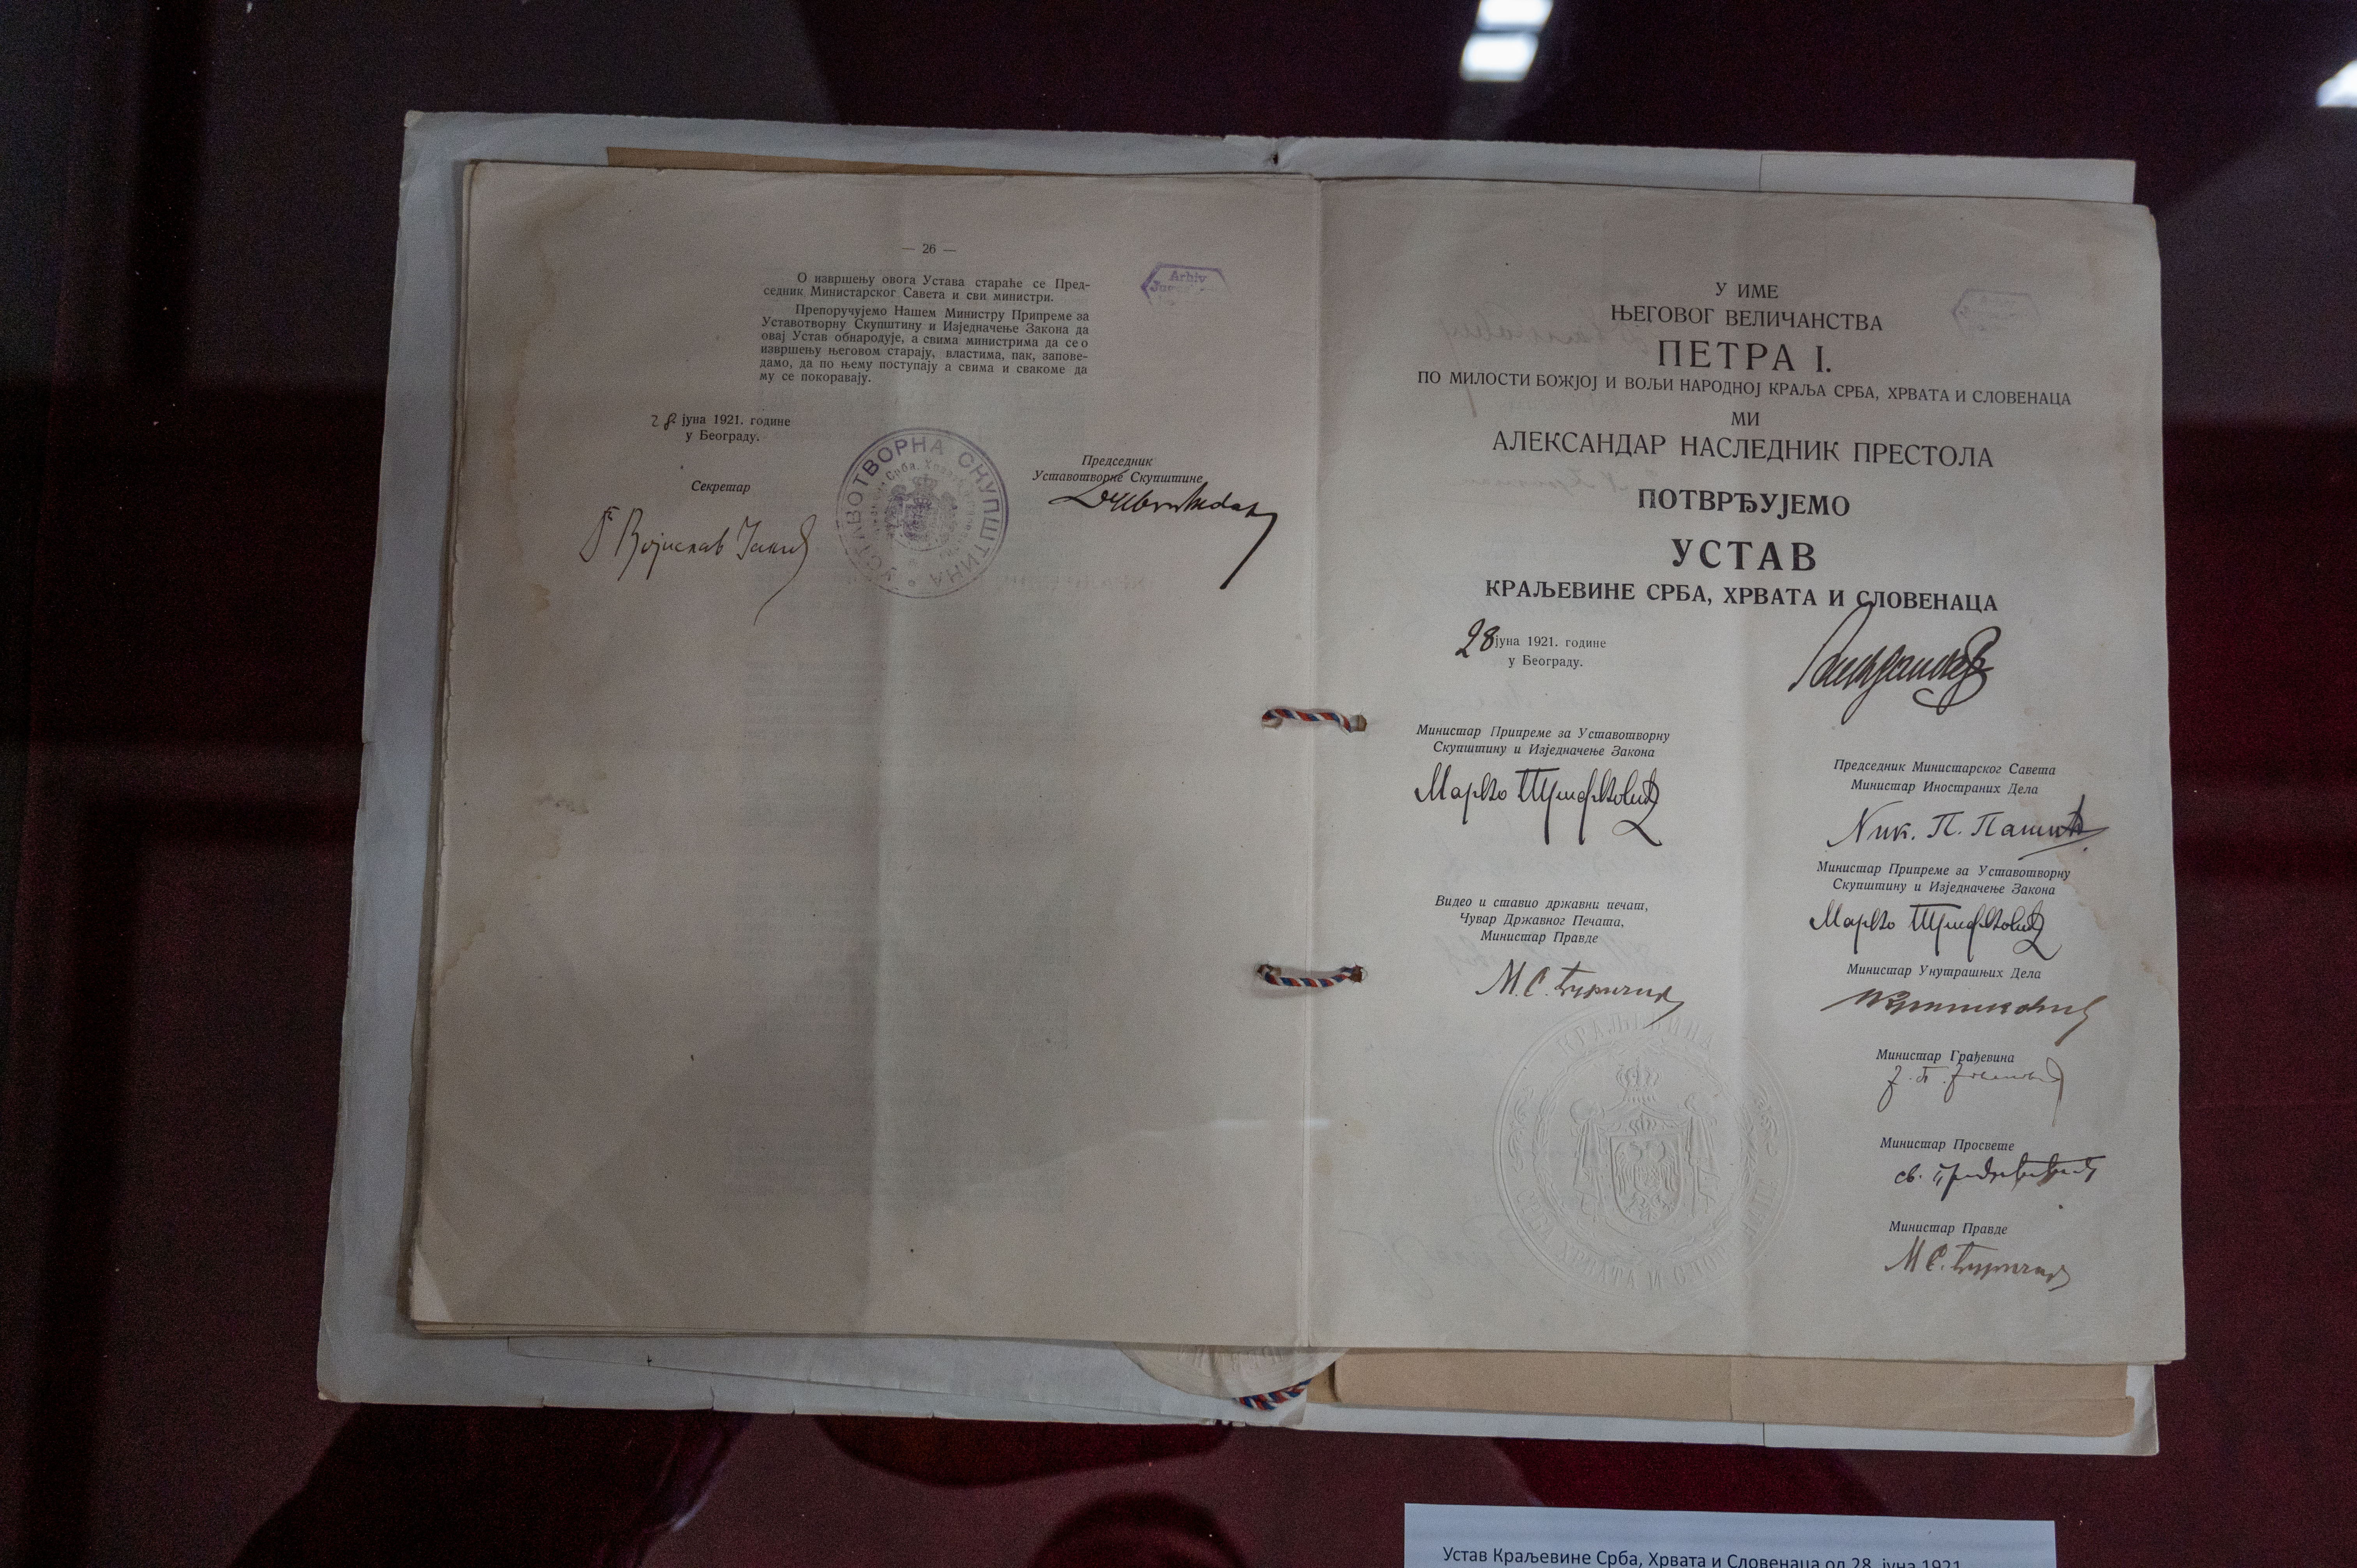 — 26 —
О извршењу овога Устава стараће се Пред-
седник Министарског Савета и сви министри.
Препоручујемо Нашем Министру Припреме за
Уставотворну Скупштину и Изједначење Закона да
овај Устав обнародује, а свима министрима да се о
извршењу његовом старају, властима, пак, запове-
дамо, да по њему поступају а свима и свакоме да
му се покоравају.
28 јуна 1921. године
у Београду.
Секретар
Војислав
УСТАВОТВОРНА СКУПШТИНА
Председник
Уставотворне Скупштине
Arhiv
У ИМЕ
ЊЕГОВОГ ВЕЛИЧАНСТВА
ПЕТРА I.
ПО МИЛОСТИ БОЖЈОЈ И ВОЉИ НАРОДНОЈ КРАЉА СРБА, ХРВАТА И СЛОВЕНАЦА
МИ
АЛЕКСАНДАР НАСЛЕДНИК ПРЕСТОЛА
ПОТВРЂУЈЕМО
УСТАВ
КРАЉЕВИНЕ СРБА, ХРВАТА И СЛОВЕНАЦА
28 јуна 1921. године
у Београду.
Министар Припреме за Уставотворну
Скупштину и Изједначење Закона
Марко Трифковић
Видео и ставио државни печат,
Чувар Државног Печата,
Министар Правде
М. С. Ђуричић
КРАЉЕВИНА
СРБА ХРВАТА И СЛОВЕНАЦА
Председник Министарског Савета
Министар Иностраних Дела
Ник. П. Пашић
Министар Припреме за Уставотворну
Скупштину и Изједначење Закона
Марко Трифковић
Министар Унутрашњих Дела
Министар Грађевина
Министар Просвете
Министар Правде
М. С. Ђуричић
Устав Краљевине Срба, Хрвата и Словенаца од 28. јуна 1921.